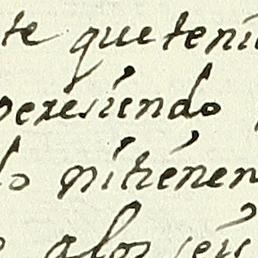 te que teni
pereſiendo
lo nitienen
alos ſeis